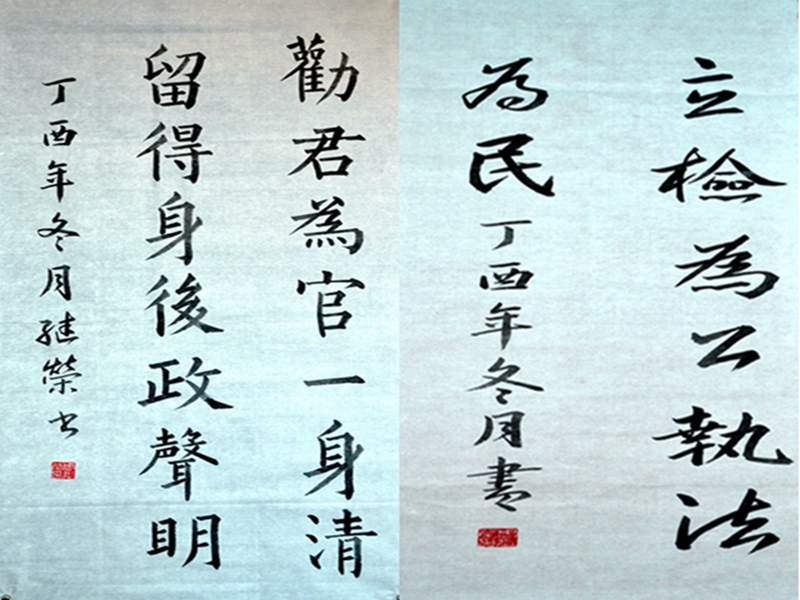 勸君為官一身清
留得身後政聲明
丁酉年冬月继榮书
立檢為公執法
為民
丁酉年冬月書